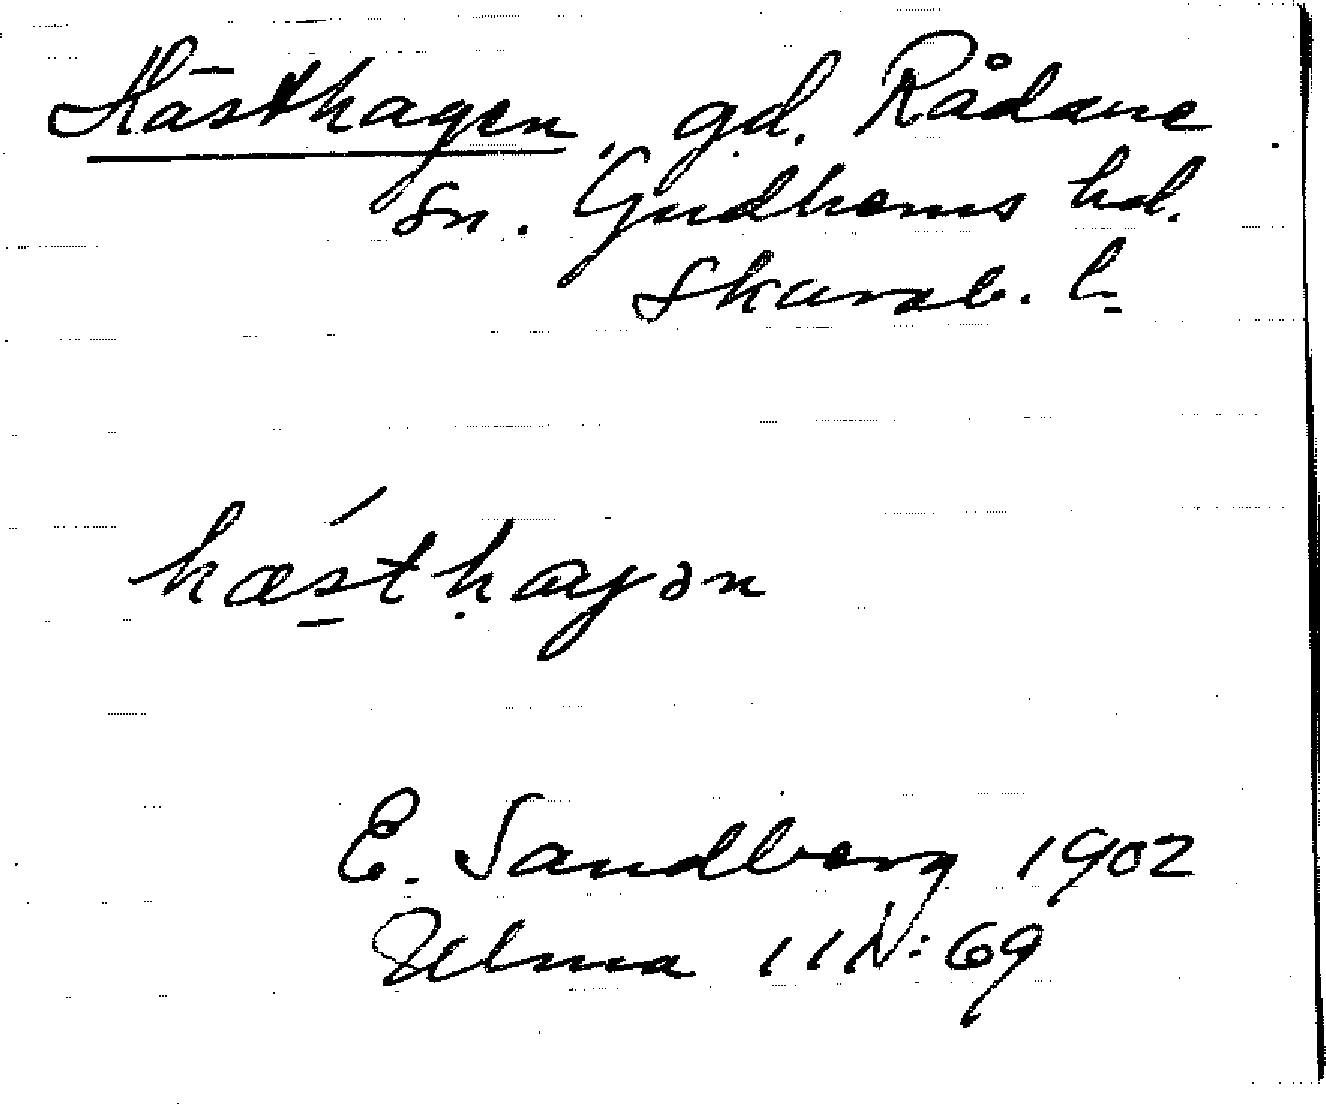 Hästhagen, gd. Rådene
sn. Gudhems hd.
Skarab. l.
hæsthagən
E. Sandberg 1902
Ulma 111:69